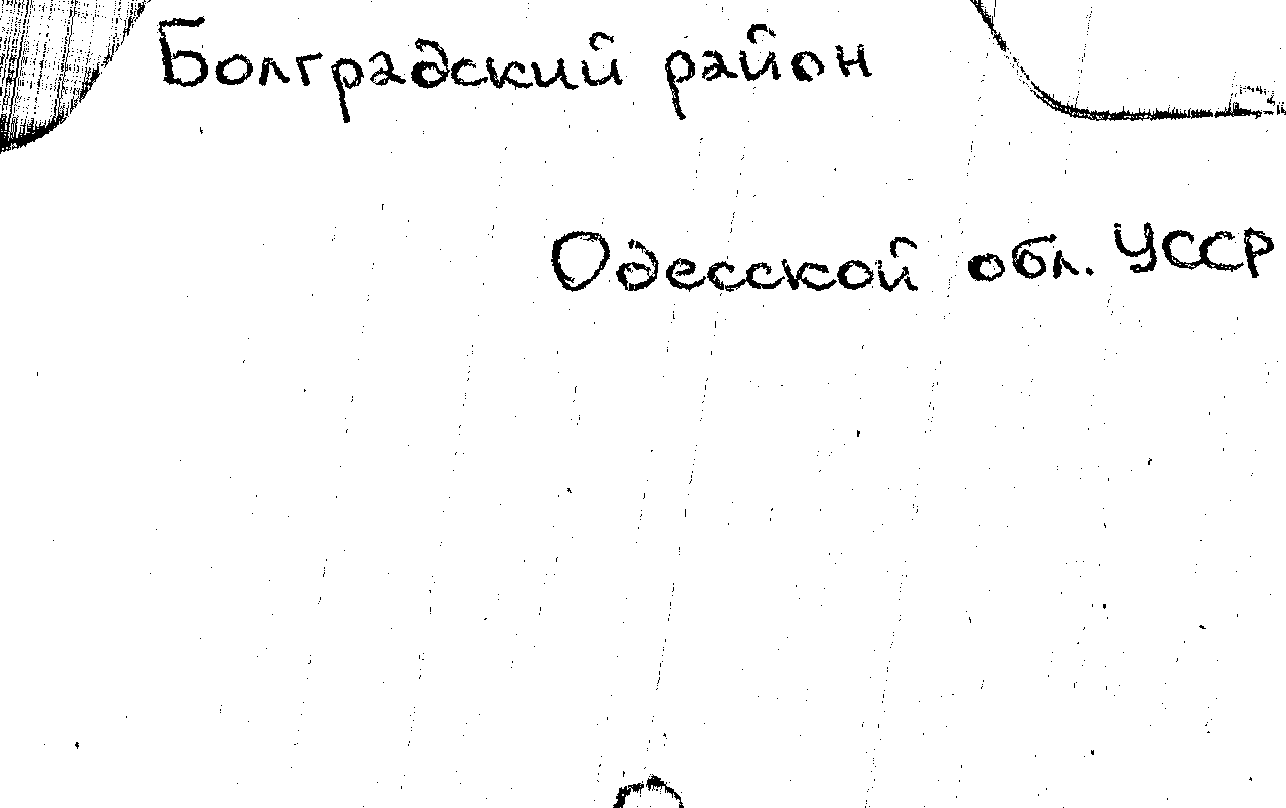 Болградский район
Одесской обл. УССР